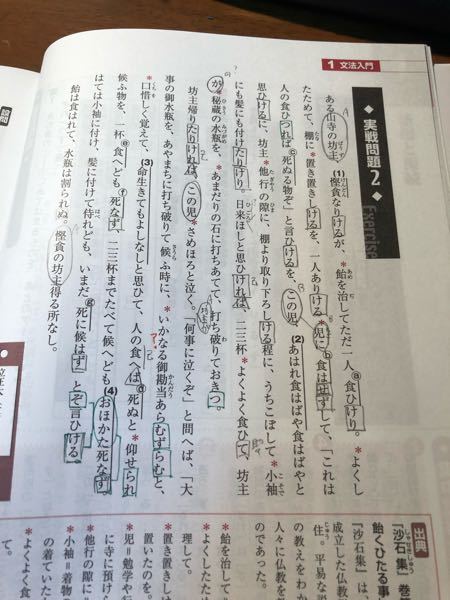 1 文法入門
◆ 実戦問題 2 ◆ Exercise
ある山寺の坊主、(1)慳貪なりけるが、*飴を治してただ一人ⓐ食ひけり。*よくし
たためて、棚に*置き置きしけるを、一人ありける*児にⓑ食はせずして、「これは
人の食ひつればⓒ死ぬる物ぞ」と言ひけるを、この児、(2)あはれ食はばや食はばやと
思ひけるに、坊主*他行の隙に、棚より取り下ろしける程に、うちこぼして*小袖
にも髪にも付けたりけり。日来ほしと思ひければ、二三杯*よくよく食ひて、坊主
が*秘蔵の水瓶を、*あまだりの石に打ちあてて、打ち破りておきつ。
坊主帰りたりければ、この児*さめほろと泣く。「何事に泣くぞ」と問へば、「大
事の御水瓶を、あやまちに打ち破りて候ふ時に、*いかなる御勘当あらむずらむと、
*口惜しく覚えて、(3)命生きてもよしなしと思ひて、人の食へばⓓ死ぬと*仰せられ
候ふ物を、一杯ⓔ食へどもⓕ死なず、二三杯までたべて候へども(4)おほかた死なず。
はては小袖に付け、髪に付けて侍れども、いまだⓖ死に候はず」とぞ言ひける。
飴は食はれて、水瓶は割られぬ。慳貪の坊主得る所なし。
設問
出典
『沙石集』巻
飴くひたる事
『沙石集』は、
成立した仏教
住。平易な説
の教えをわか
人々に仏教を
のであった。
*飴を治して
*よくしたた
理して。
*置き置きし
置いたのを。
*児＝勉学や
に寺に預け
*他行の隙に
*小袖＝着物
の着ていた
*よくよく食
て。